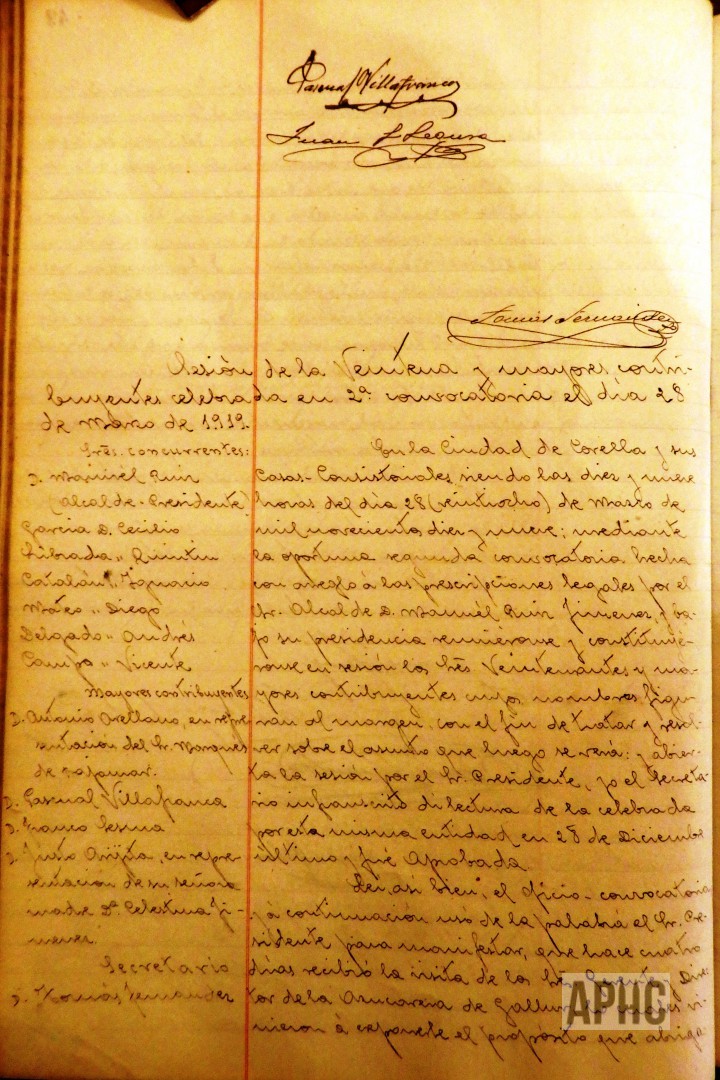 Pascual Villafranca
Juan L Segura
Tomás Fernández
Sesión de la Veintena y mayores contri-
buyentes celebrada en 2ª convocatoria el día 28
de Marzo de 1919.
Sres. concurrentes:
D. Manuel Ruiz
(Alcalde-Presidente)
Garcia D. Cecilio
Librada " Quintin
Catalán " Ignacio
" Diego
Delgado " Andrés
Campo " Vicente
Mayores contribuyentes
D. Antonio Arellano, en repre-
sentación del Sr. Marqués
de
D. Pascual Villafranca
D. Sesma
D. Justo en repre-
sentación de su señora
madre Dª. Celestina Ji-
menez.
Secretario
D. Tomás Fernandez
En la Ciudad de Corella y sus
Casas-Consistoriales siendo las diez y nueve
horas del día 28 (veintiocho) de Marzo de
mil novecientos diez y nueve; mediante
la oportuna segunda convocatoria hecha
con arreglo a las prescripciones legales por el
Sr. Alcalde D. Manuel Ruiz Jimenez, y ba-
jo su presidencia reunieronse y constituyé-
ronse en sesión los Sres Veintenantes y ma-
yores contribuyentes cuyos nombres figu-
ran al margen, con el fin de tratar y resol-
ver sobre el asunto que luego se verá: y abier-
ta la sesión por el Sr. Presidente, yo el Secreta-
rio infrascrito di lectura de la celebrada
por esta misma entidad en 28 de Diciembre
último y fué Aprobada.
Lei asi bien, el oficio-convocatoria
y á continuación usó de la palabra el Sr. Pre-
sidente para manifestar, que hace cuatro
días recibió la visita de los Sres. y Direc-
tor de la Azucarera de vi-
nieron á exponerle el propósito que abriga
APHC